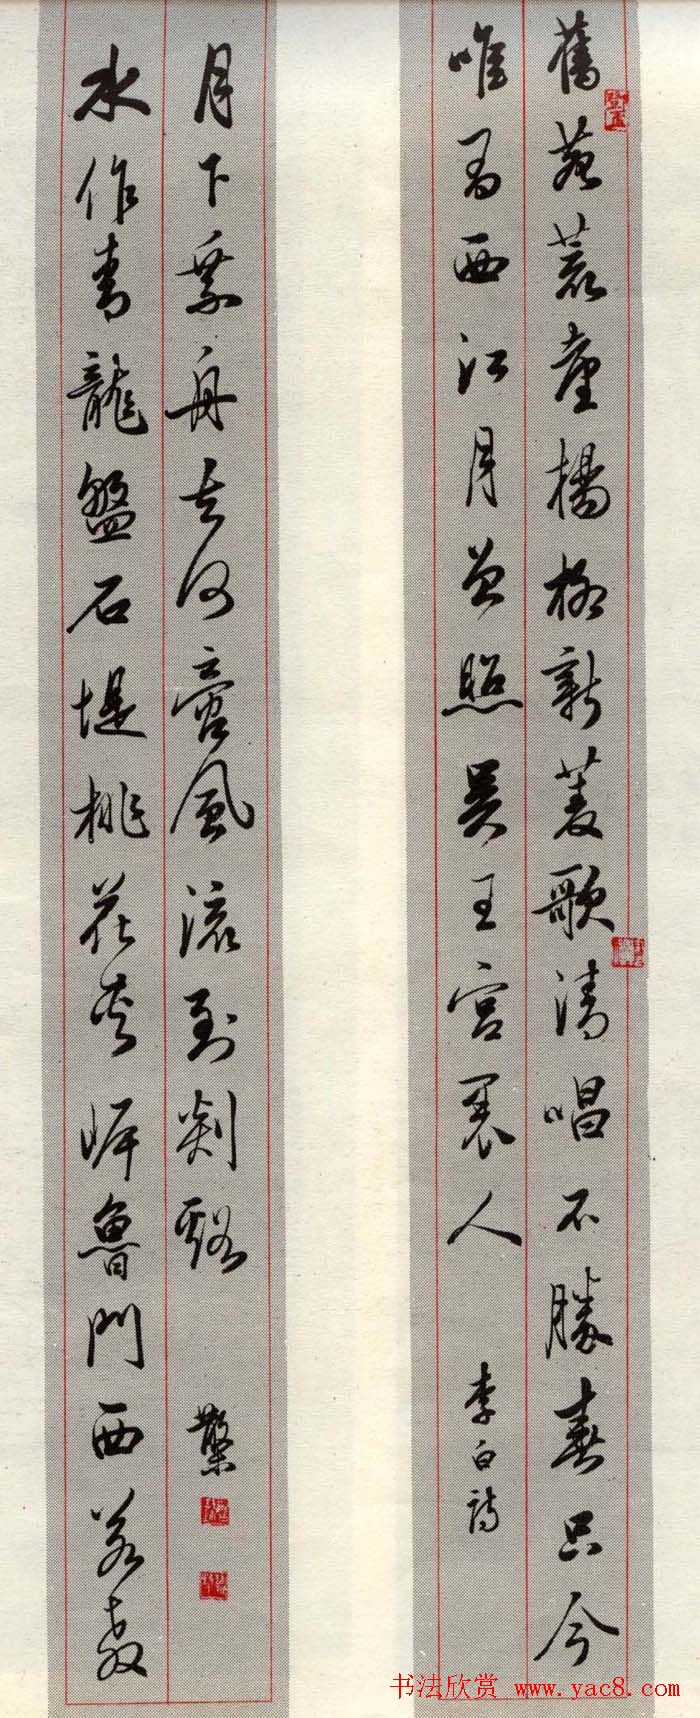 舊苑荒臺楊柳新菱歌清唱不勝春只今
唯有西江月曾照吳王宮裏人
李白詩
水作青龍盤石堤桃花夾岸魯門西若教
月下乘舟去何啻風流到剡谿
书法欣赏 www.yac8.com